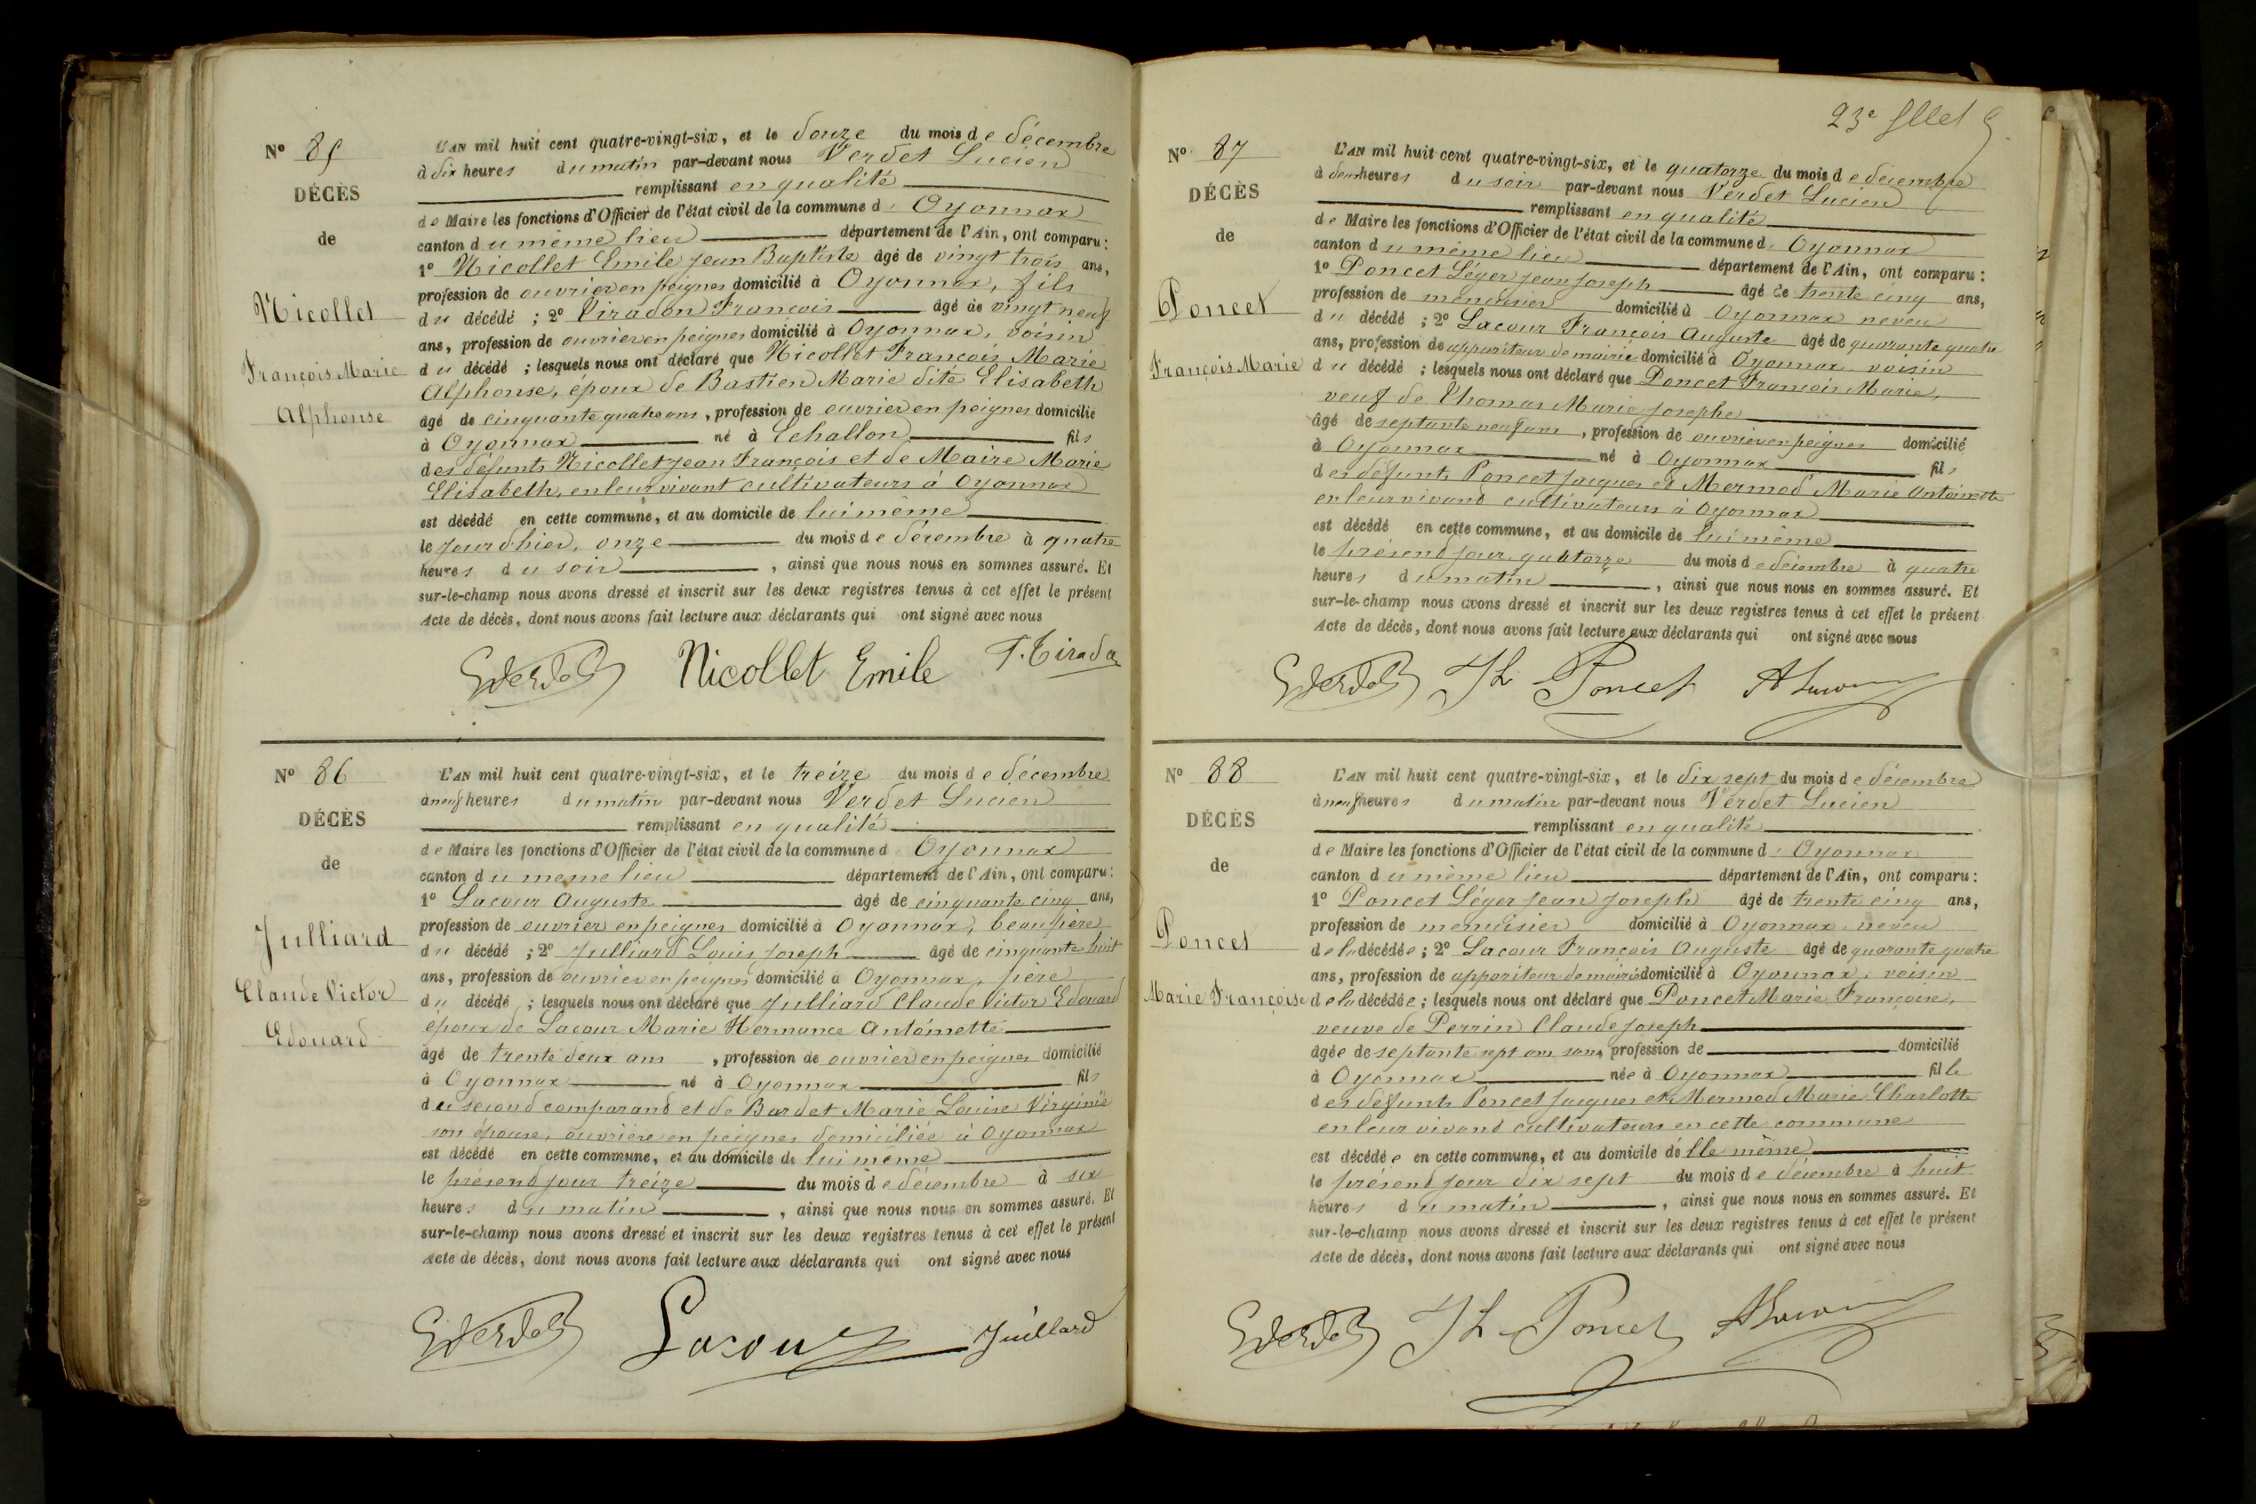 Nº 85
DÉCÈS
de
Nicollet
François Marie
Alphonse
L'AN mil huit cent quatre-vingt-six, et le douze du mois de décembre
à dix heures du matin par-devant nous Verdet Lucien
remplissant en qualité
de Maire les fonctions d'Officier de l'état civil de la commune d' Oyonnax
canton du même lieu département de l'Ain, ont comparu :
1º Nicollet Emile Jean Baptiste âgé de vingt trois ans,
profession de ouvrier en peignes domicilié à Oyonnax, fils
du décédé ; 2º Tiradon François âgé de vingt neuf
ans, profession de ouvrier en peignes domicilié à Oyonnax, voisin
du décédé ; lesquels nous ont déclaré que Nicollet François Marie
Alphonse, époux de Bastien Marie dite Elisabeth
âgé de cinquante quatre ans, profession de ouvrier en peignes domicilié
à Oyonnax né à Echallon fils
des défunts Nicollet Jean François et de Maire Marie
Elisabeth, en leur vivant cultivateurs à Oyonnax
est décédé en cette commune, et au domicile de lui même
le jour d'hier, onze du mois de décembre à quatre
heures du soir, ainsi que nous nous en sommes assuré. Et
sur-le-champ nous avons dressé et inscrit sur les deux registres tenus à cet effet le présent
Acte de décès, dont nous avons fait lecture aux déclarants qui ont signé avec nous
Nicollet Emile
Nº 86
DÉCÈS
de
Julliard
Claude Victor
Edouard
L'AN mil huit cent quatre-vingt-six, et le treize du mois de décembre
à neuf heures du matin par-devant nous Verdet Lucien
remplissant en qualité
de Maire les fonctions d'Officier de l'état civil de la commune d' Oyonnax
canton du même lieu département de l'Ain, ont comparu :
1º Lacour Auguste âgé de cinquante cinq ans,
profession de ouvrier en peignes domicilié à Oyonnax, beau père
du décédé ; 2º Julliard Louis Joseph âgé de cinquante huit
ans, profession de ouvrier en peignes domicilié à Oyonnax, père
du décédé ; lesquels nous ont déclaré que Julliard Claude Victor Edouard
époux de Lacour Marie Hermance Antoinette
âgé de trente deux ans, profession de ouvrier en peignes domicilié
à Oyonnax né à Oyonnax fils
du second comparand et de Bardet Marie Louise Virginie
son épouse, ouvrière en peignes domiciliée à Oyonnax
est décédé en cette commune, et au domicile de lui même
le présend jour treize du mois de décembre à six
heures du matin, ainsi que nous nous en sommes assuré. Et
sur-le-champ nous avons dressé et inscrit sur les deux registres tenus à cet effet le présent
Acte de décès, dont nous avons fait lecture aux déclarants qui ont signé avec nous
Lacour Juillard
23e
Nº 87
DÉCÈS
de
Poncet
François Marie
L'AN mil huit cent quatre-vingt-six, et le quatorze du mois de décembre
à deux heures du soir par-devant nous Verdet Lucien
remplissant en qualité
de Maire les fonctions d'Officier de l'état civil de la commune d' Oyonnax
canton du même lieu département de l'Ain, ont comparu :
1º Poncet Léger Jean Joseph âgé de trente cinq ans,
profession de menuisier domicilié à Oyonnax neveu
du décédé ; 2º Lacour François Auguste âgé de quarante quatre
ans, profession de appariteur de mairie domicilié à Oyonnax voisin
du décédé ; lesquels nous ont déclaré que Poncet François Marie,
veuf de Thomas Marie Josephe
âgé de septante neuf ans, profession de ouvrier en peignes domicilié
à Oyonnax né à Oyonnax fils
des défunts Poncet Jacques et Mermod Marie Antoinette
en leur vivand cultivateurs à Oyonnax
est décédé en cette commune, et au domicile de lui même
le présend jour quatorze du mois de décembre à quatre
heures du matin, ainsi que nous nous en sommes assuré. Et
sur-le-champ nous avons dressé et inscrit sur les deux registres tenus à cet effet le présent
Acte de décès, dont nous avons fait lecture aux déclarants qui ont signé avec nous
Poncet
Nº 88
DÉCÈS
de
Poncet
Marie Françoise
L'AN mil huit cent quatre-vingt-six, et le dix sept du mois de décembre
à neuf heures du matin par-devant nous Verdet Lucien
remplissant en qualité
de Maire les fonctions d'Officier de l'état civil de la commune d' Oyonnax
canton du même lieu département de l'Ain, ont comparu :
1º Poncet Léger Jean Joseph âgé de trente cinq ans,
profession de menuisier domicilié à Oyonnax neveu
de la décédée ; 2º Lacour François Auguste âgé de quarante quatre
ans, profession de appariteur de mairie domicilié à Oyonnax, voisin
de la décédée ; lesquels nous ont déclaré que Poncet Marie Françoise,
veuve de Perrin Claude Joseph
âgée de septante sept ans sans profession de domicilié
à Oyonnax née à Oyonnax fille
des défunts Poncet Jacques et Mermod Marie Charlotte
en leur vivand cultivateurs en cette commune
est décédée en cette commune, et au domicile d'elle même
le présend jour dix sept du mois de décembre à huit
heures du matin, ainsi que nous nous en sommes assuré. Et
sur-le-champ nous avons dressé et inscrit sur les deux registres tenus à cet effet le présent
Acte de décès, dont nous avons fait lecture aux déclarants qui ont signé avec nous
Poncet